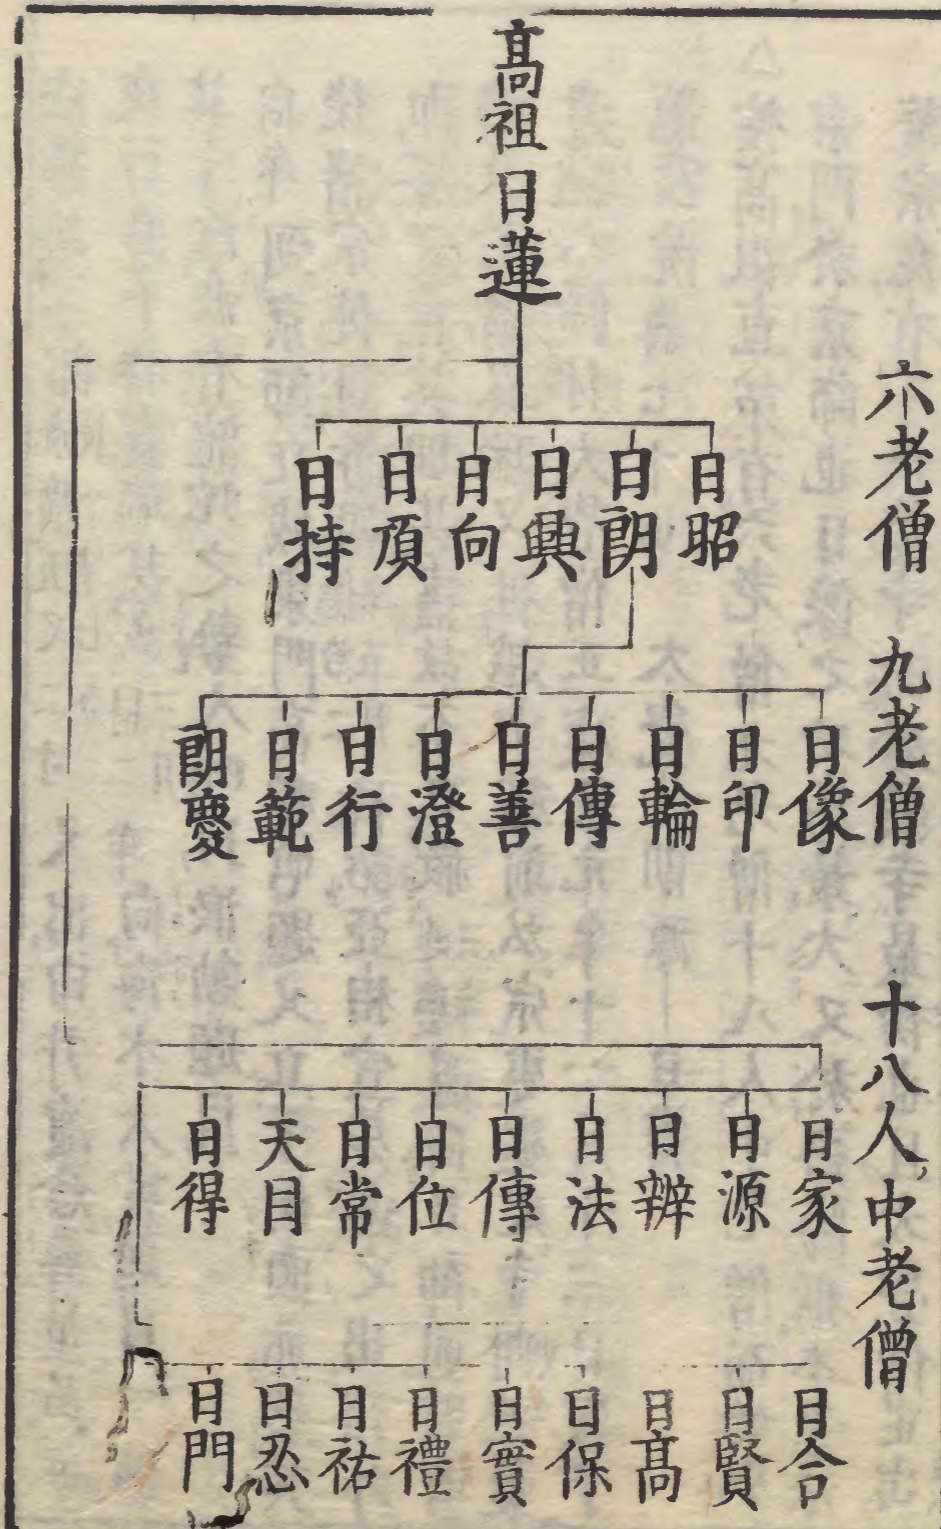 六老僧 九老僧 十八人中老僧
高祖日蓮
日昭
日朗
日興
日向
日頂
日持
日像
日印
日輪
日傳
日善
日澄
日行
日範
朗慶
日家
日源
日辨
日法
日傳
日位
日常
天目
日得
日合
日賢
日高
日保
日實
日禮
日祐
日忍
日門